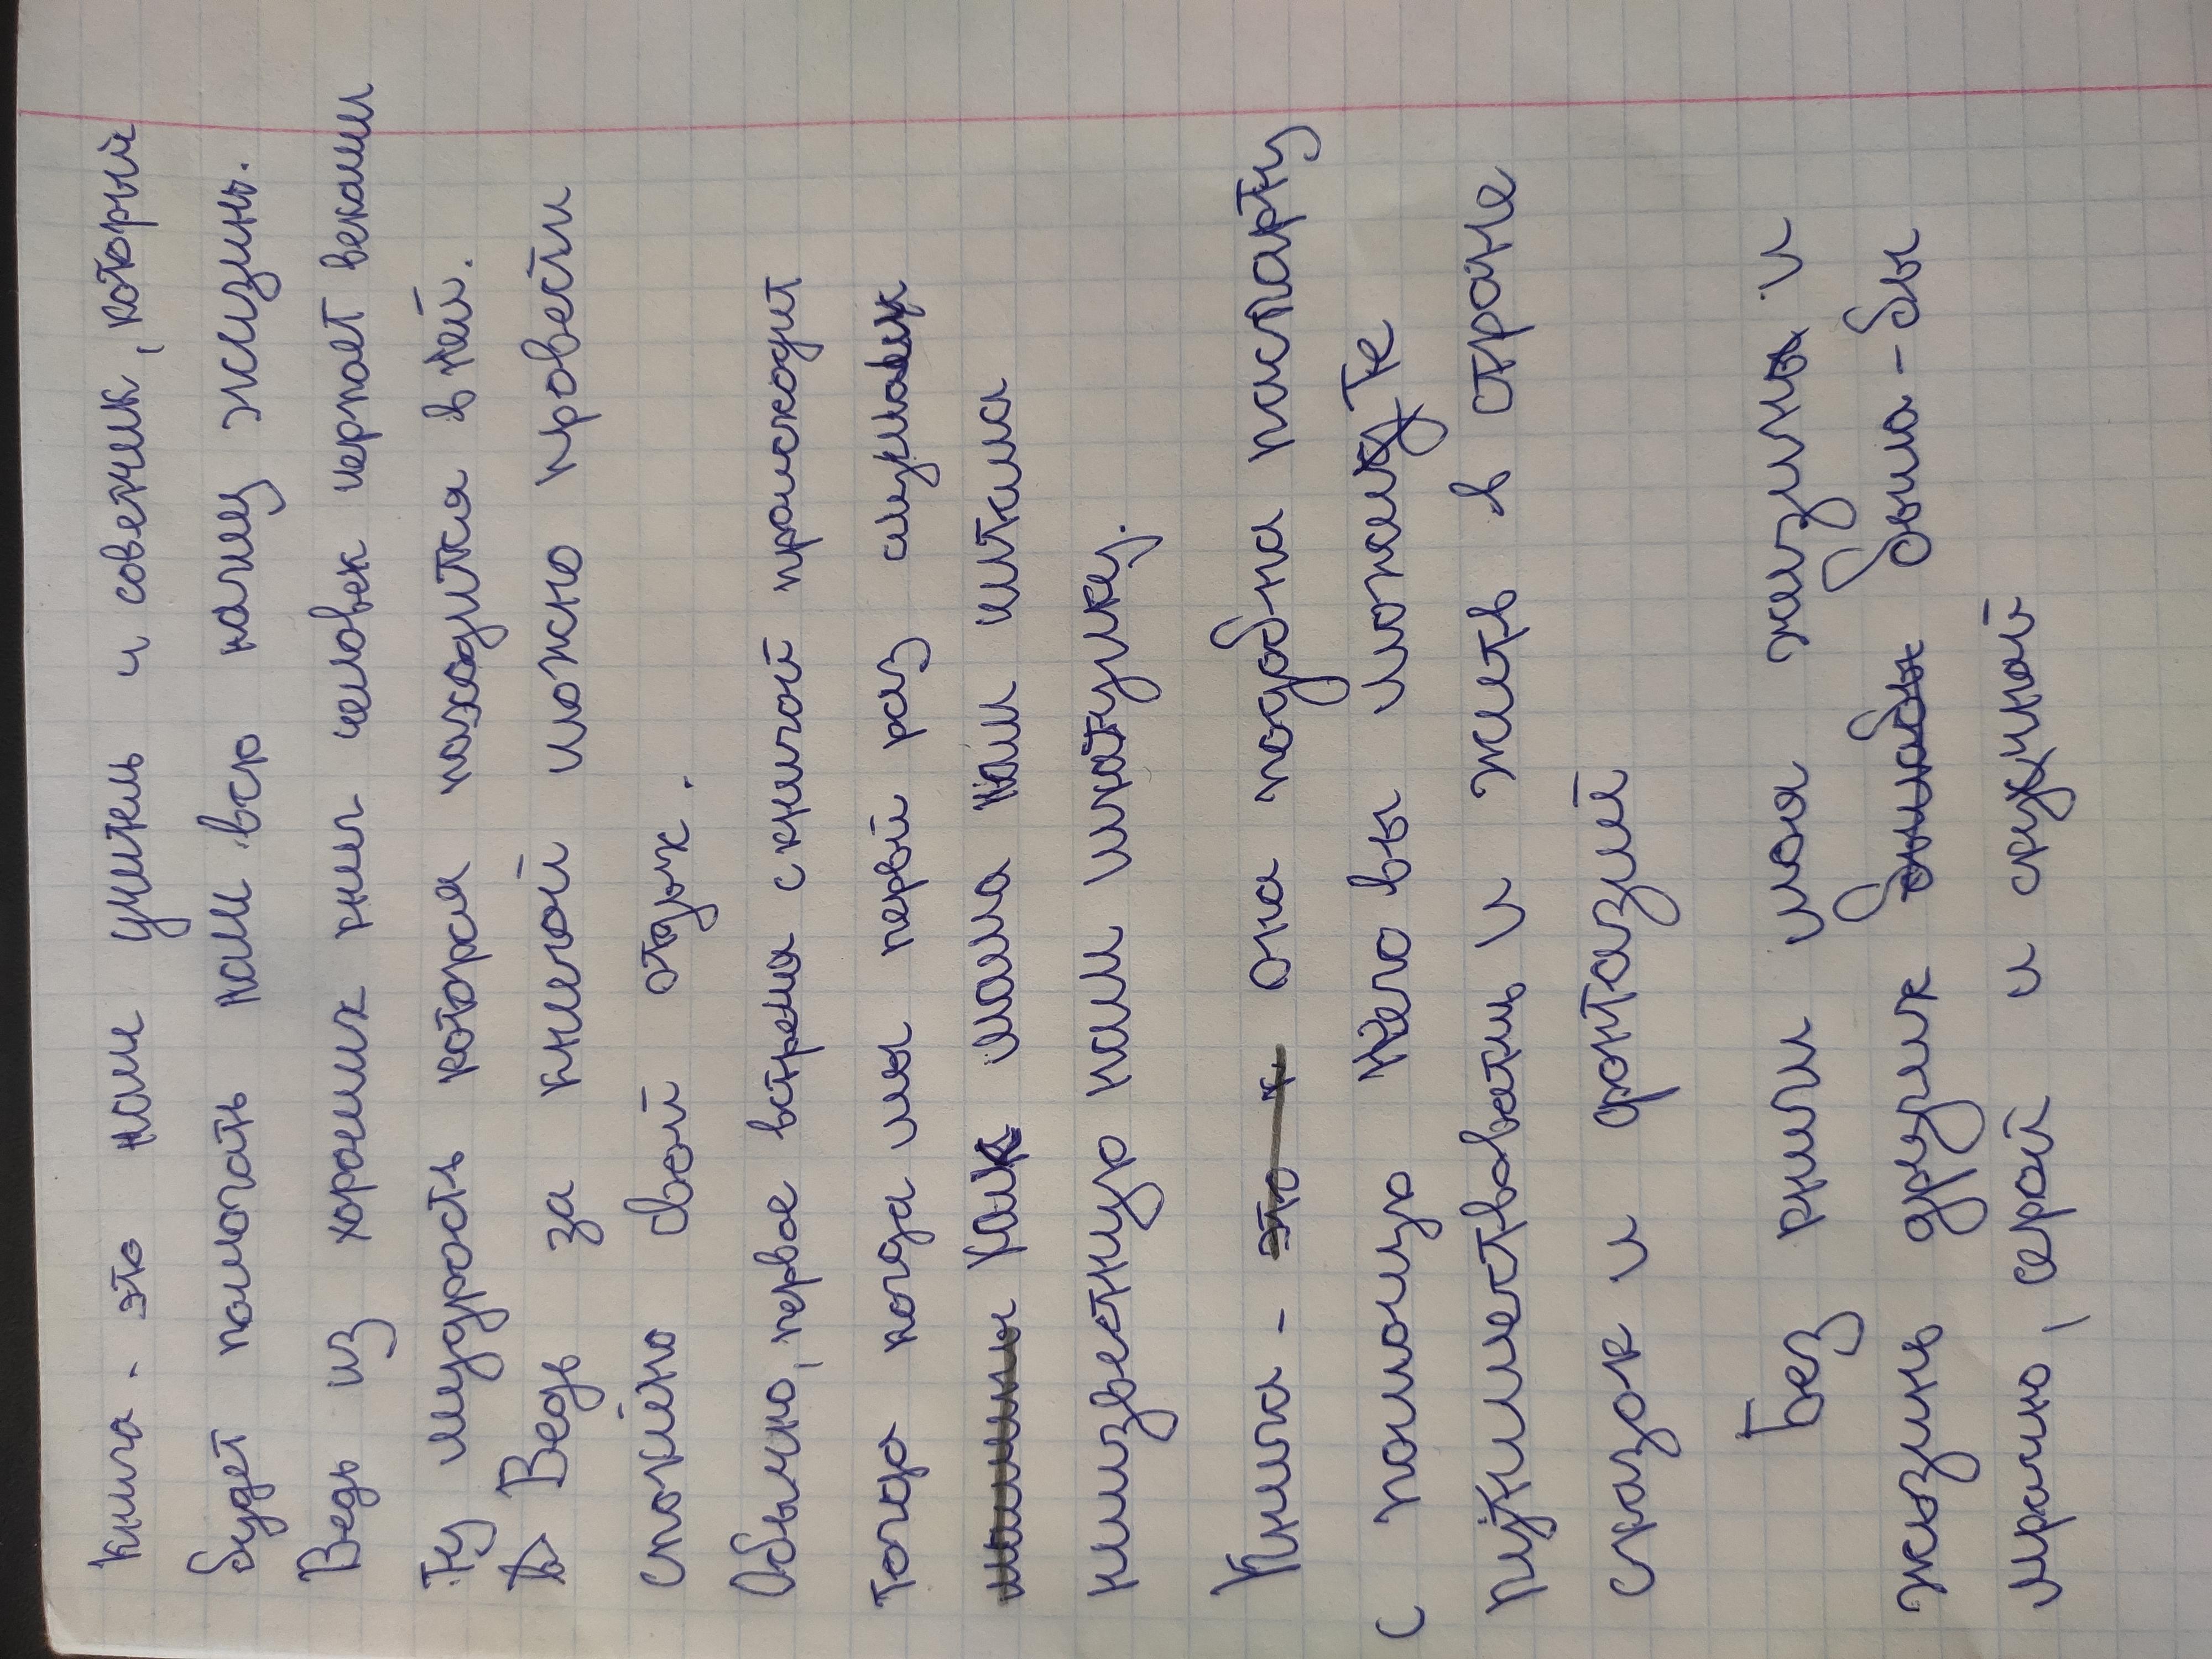 Книга - это наш учитель и советчик, который
будет помогать нам всю нашу жизинь.
Ведь из хороших книг человек черпает веками
ту мудрость которая находится в ней.
Ведь за книгой можно провести
спокйно свой отдых.
Обычно, первое встреча с книгой происходит
тогда когда мы первый раз слушаем
как мама нам читала
неизвестную нам шкатулку.
Книга - она подобна паспарту
с помощю него вы можете
путишествовать и жить в стране
сказок и фонтазий
Без книги моя жизинь и
жызинь других была-бы
мрачно, серой и скучной